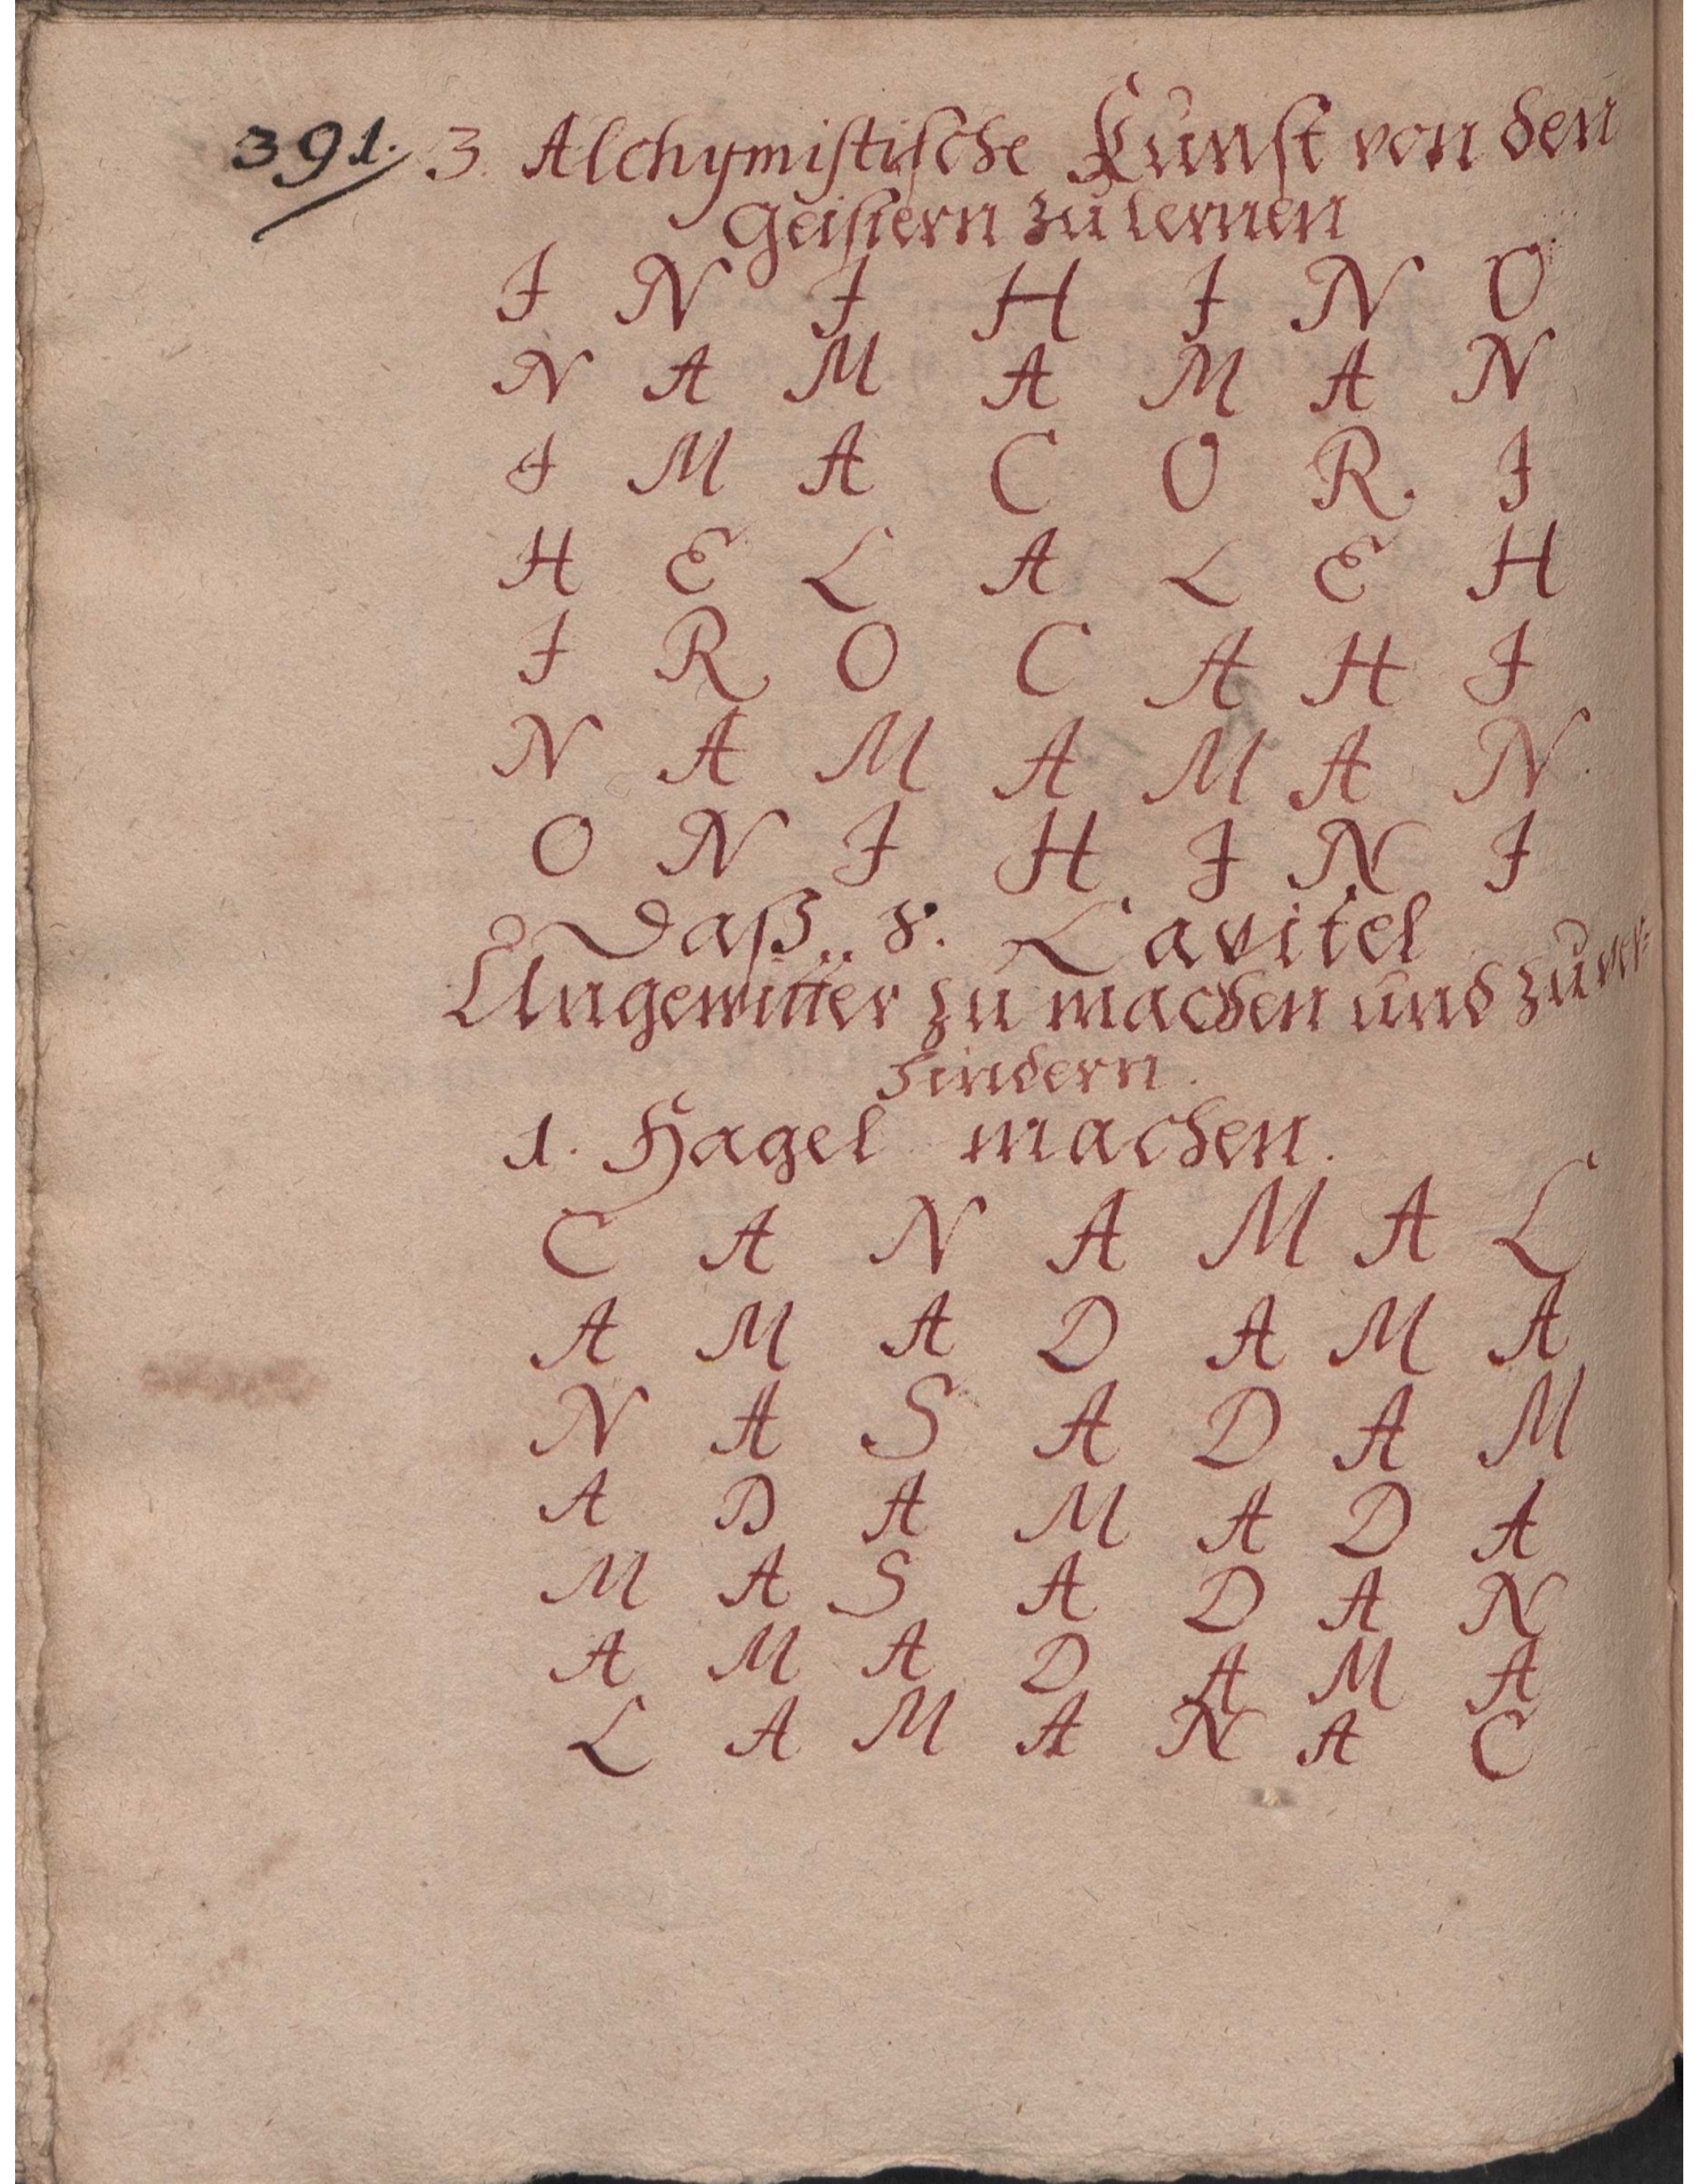 391. 3. Alchymistische Kunst von den
Geistern zu lernen
I N I H I N O
N A M A M A N
I M A C O R I
H E L A L E H
I R O C A H I
N A M A M A N
O N I H I N I
Daß 8. Capitel
Ungewitter zu machen und zu ver=
hindern.
1. Hagel machen.
C A N A M A L
A M A D A M A
N A S A D A M
A D A M A D A
M A S A D A N
A M A D A M A
L A M A N A C